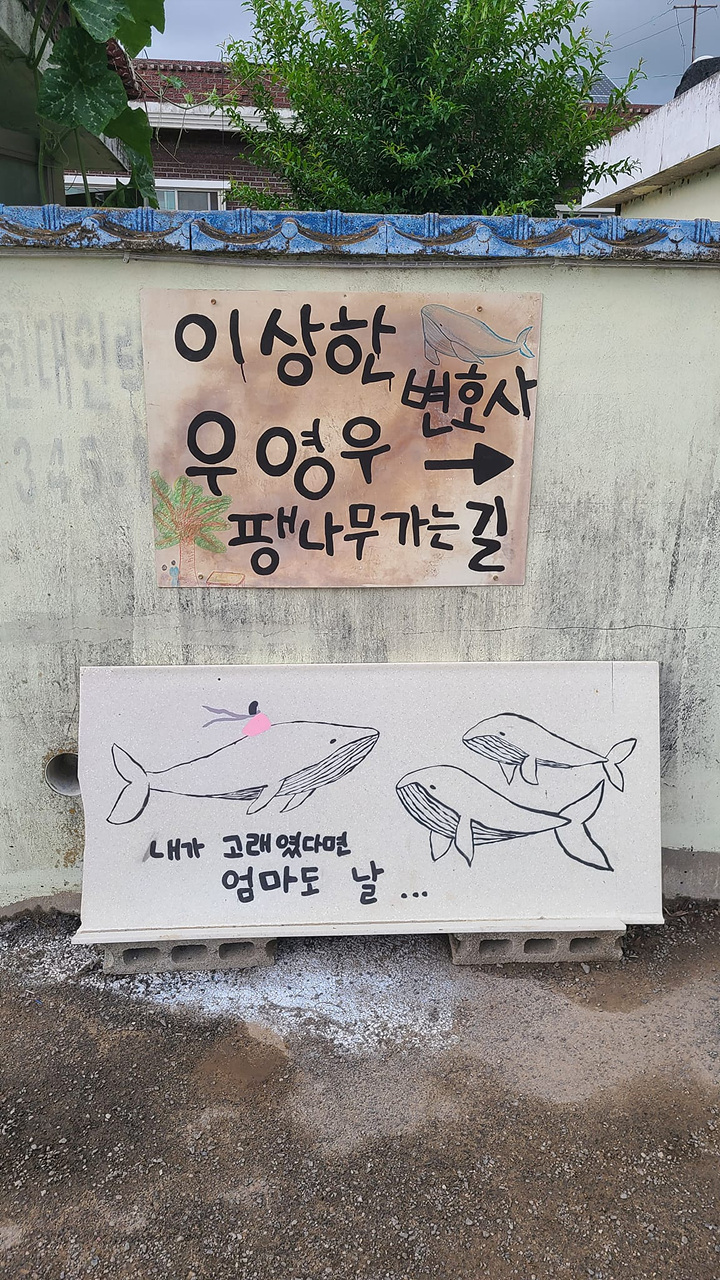 이상한
변호사
우영우 →
팽나무가는길
내가 고래였다면
엄마도 날...